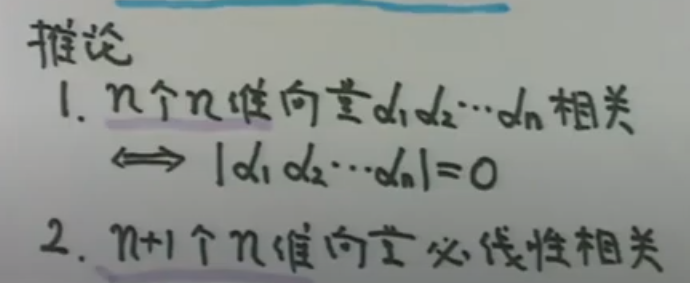 推论
1. n个n维向量α₁α₂…αₙ相关
⟺ |α₁ α₂…αₙ|=0
2. n+1个n维向量必线性相关